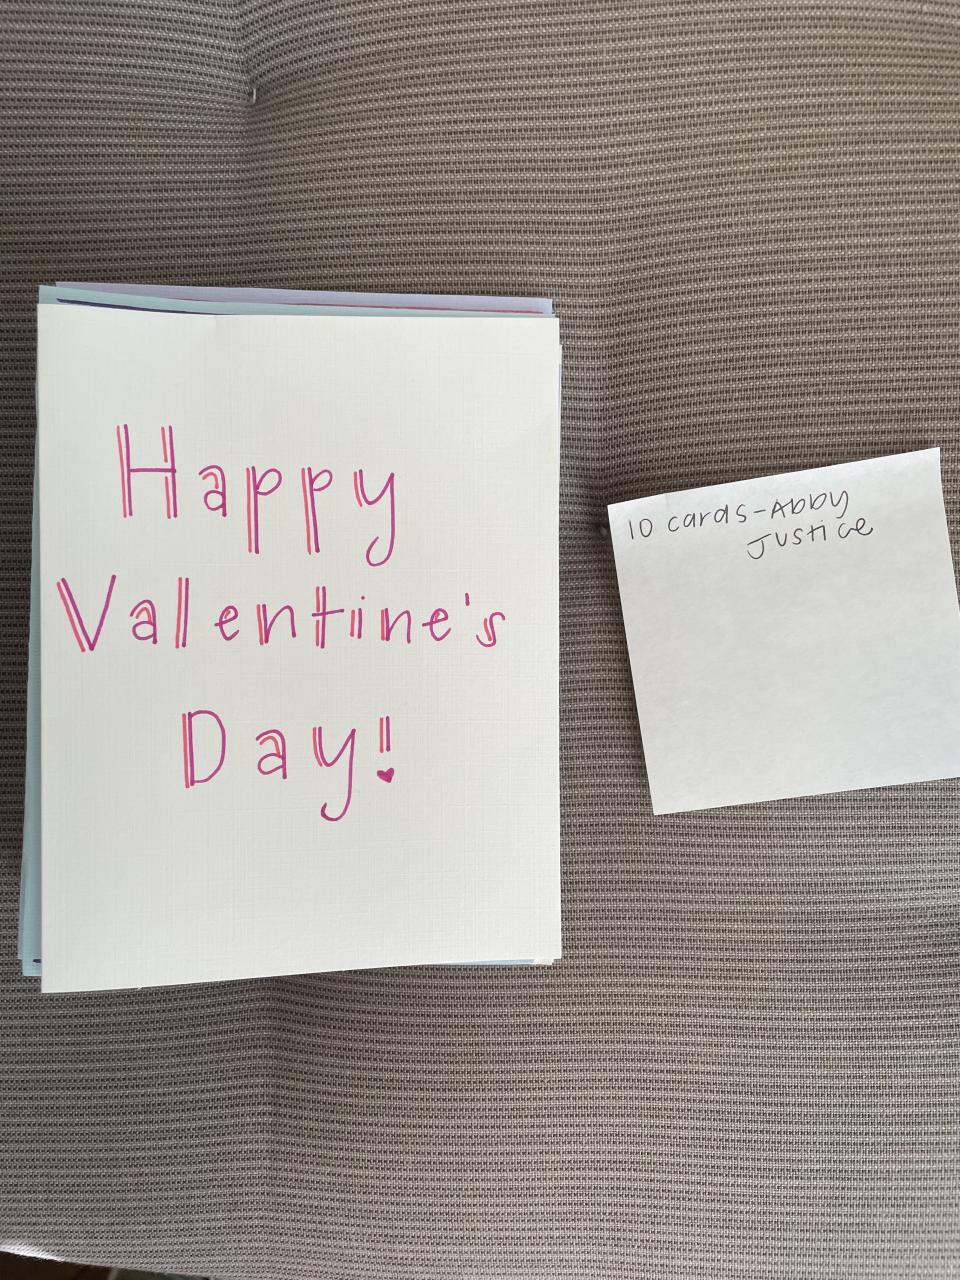 Happy
Valentine's
Day!
10 cards-Abby
Justice